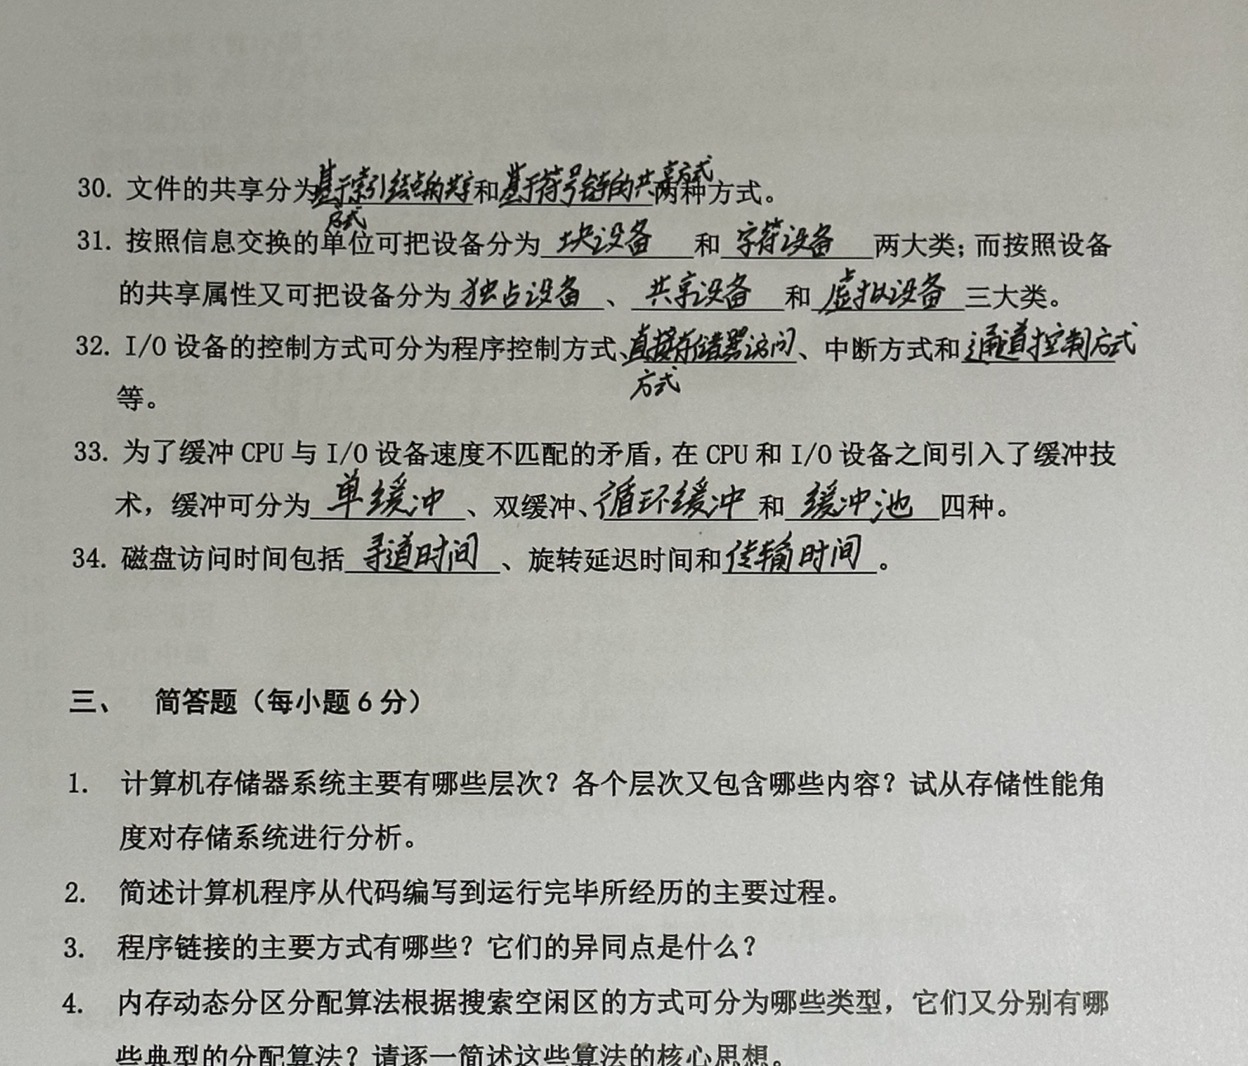 30. 文件的共享分为基于索引结点的共享方式和基于符号链的共享方式两种方式。
31. 按照信息交换的单位可把设备分为 块设备 和 字符设备 两大类；而按照设备
的共享属性又可把设备分为 独占设备 、 共享设备 和 虚拟设备 三大类。
32. I/O 设备的控制方式可分为程序控制方式、直接存储器访问方式、中断方式和通道控制方式
等。
33. 为了缓冲 CPU 与 I/O 设备速度不匹配的矛盾，在 CPU 和 I/O 设备之间引入了缓冲技
术，缓冲可分为 单缓冲 、双缓冲、循环缓冲 和 缓冲池 四种。
34. 磁盘访问时间包括 寻道时间 、旋转延迟时间和 传输时间 。
三、 简答题（每小题 6 分）
1. 计算机存储器系统主要有哪些层次？各个层次又包含哪些内容？试从存储性能角
度对存储系统进行分析。
2. 简述计算机程序从代码编写到运行完毕所经历的主要过程。
3. 程序链接的主要方式有哪些？它们的异同点是什么？
4. 内存动态分区分配算法根据搜索空闲区的方式可分为哪些类型，它们又分别有哪
些典型的分配算法？请逐一简述这些算法的核心思想。